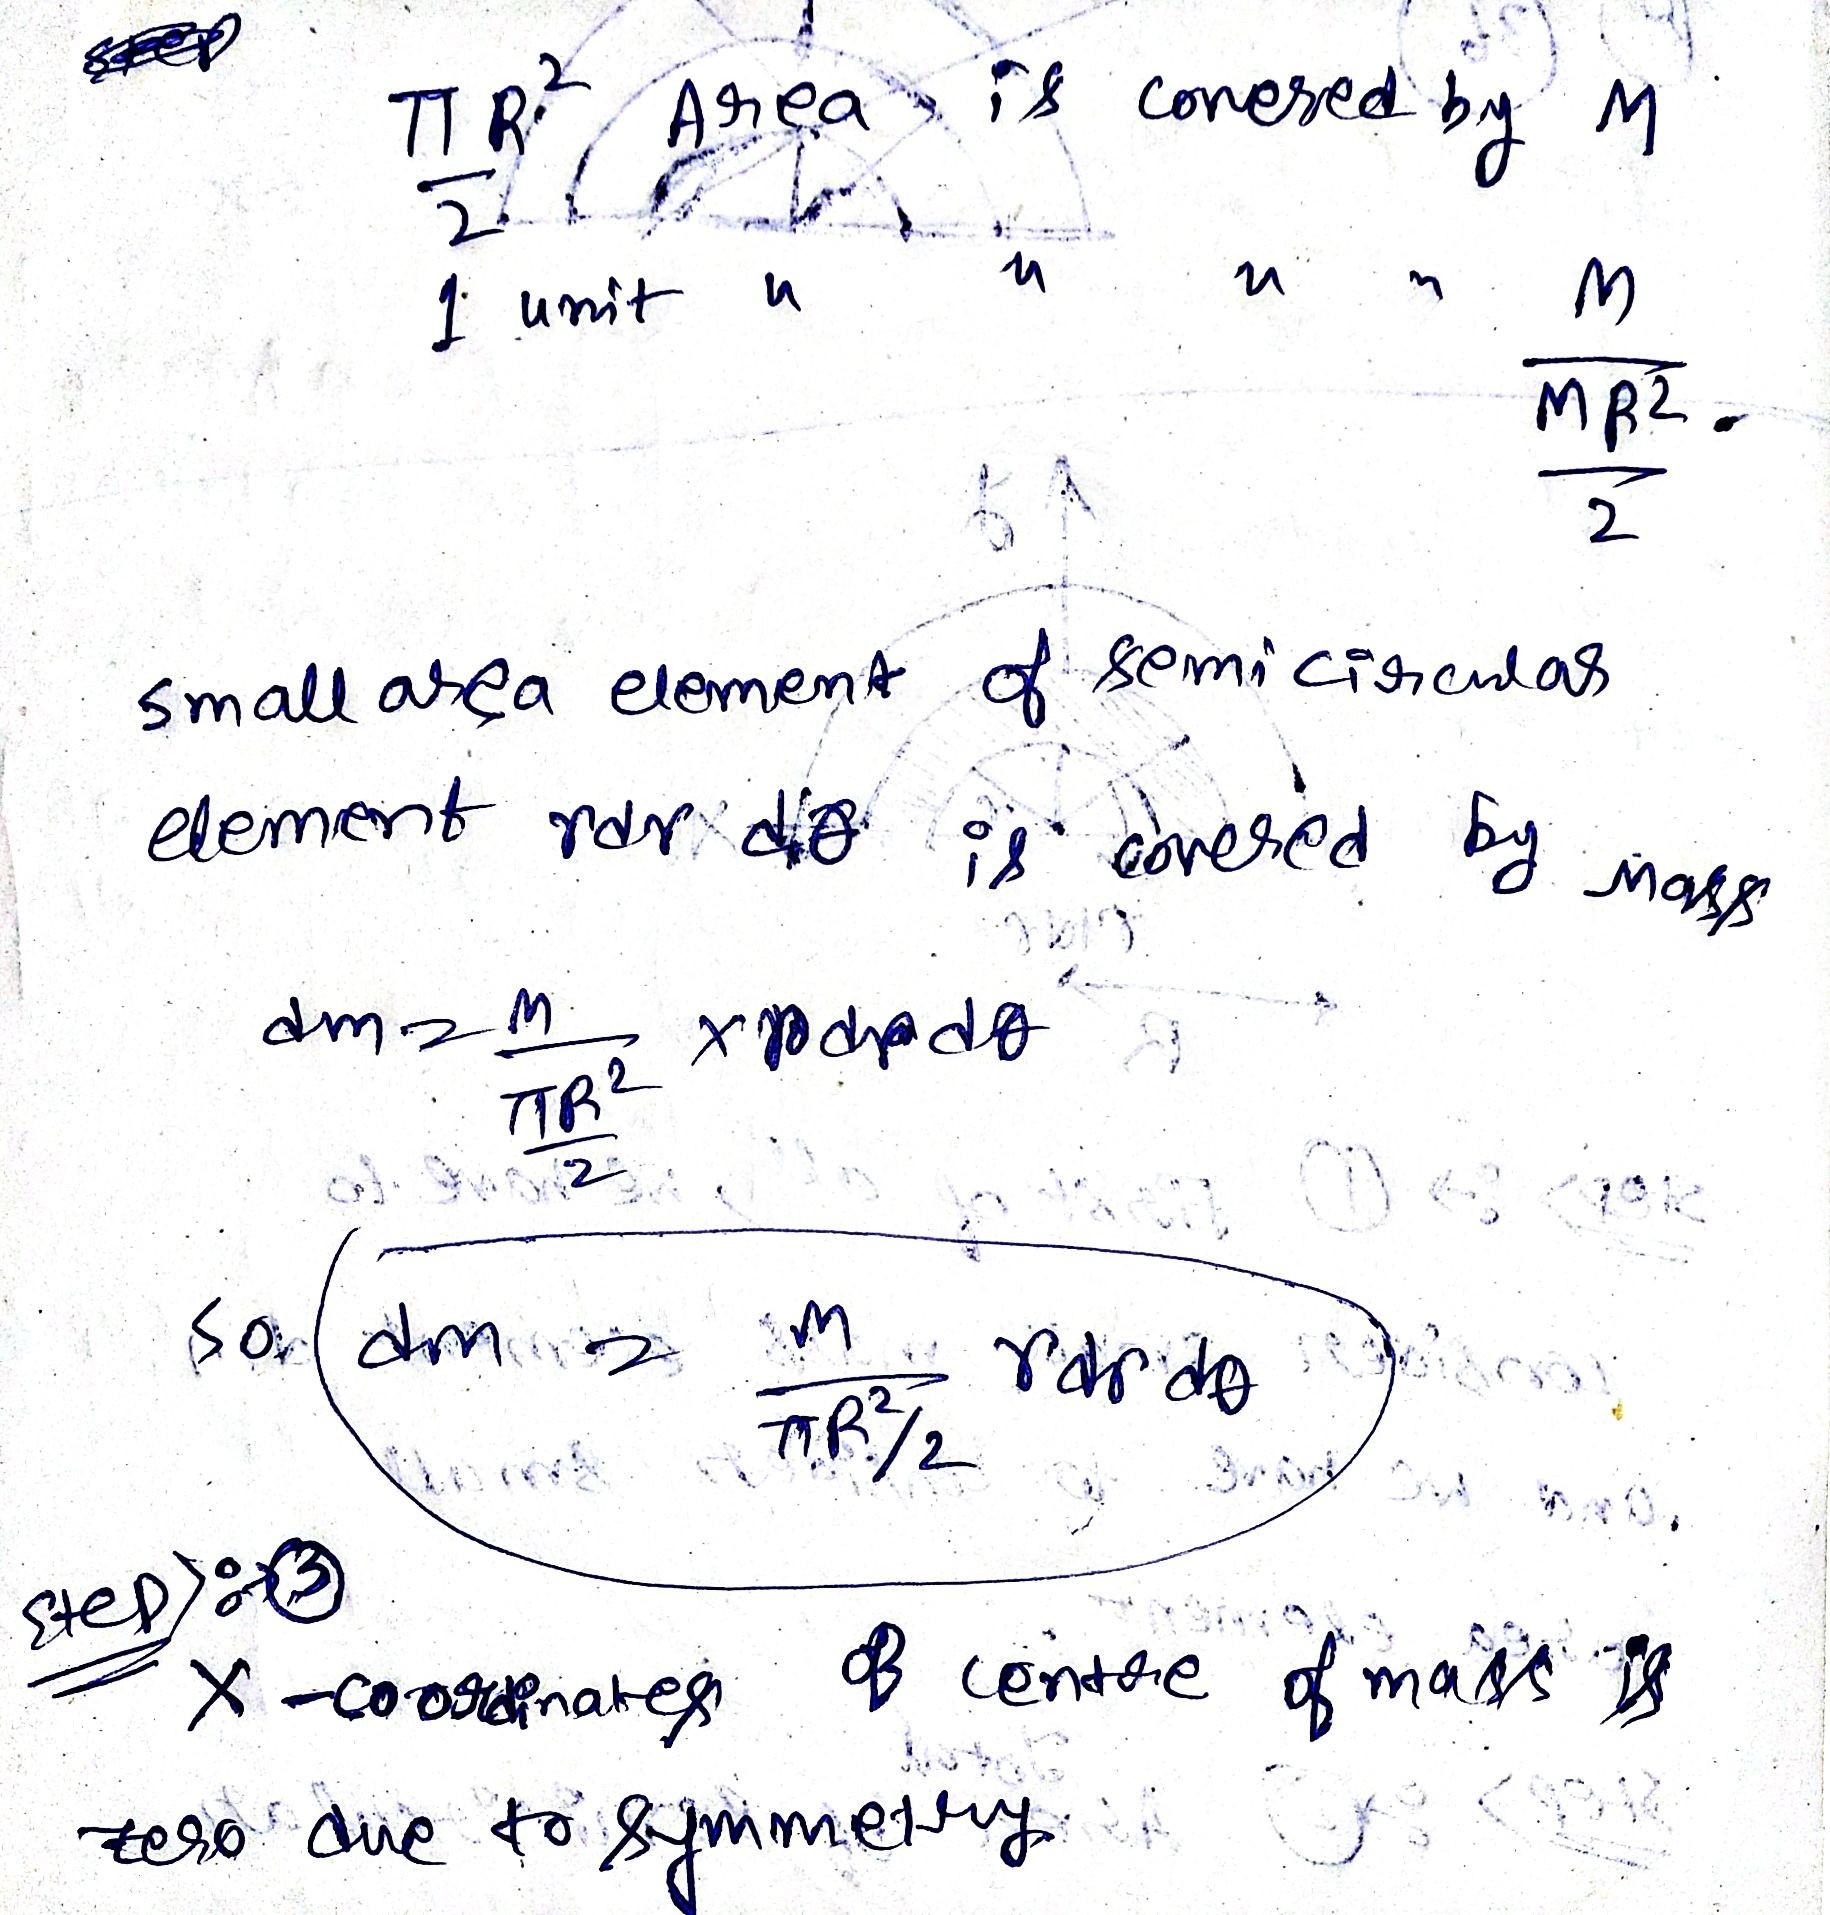 πR²/2 Area is covered by M
1 unit " " " " M/(MR²/2).
small area element of semi circular
element rdr dθ is covered by Mass
dm = M/(πR²/2) × r dr dθ
so dm = M/(πR²/2) rdr dθ
Step :- ③
X - coordinates of centre of mass is
zero due to symmetry